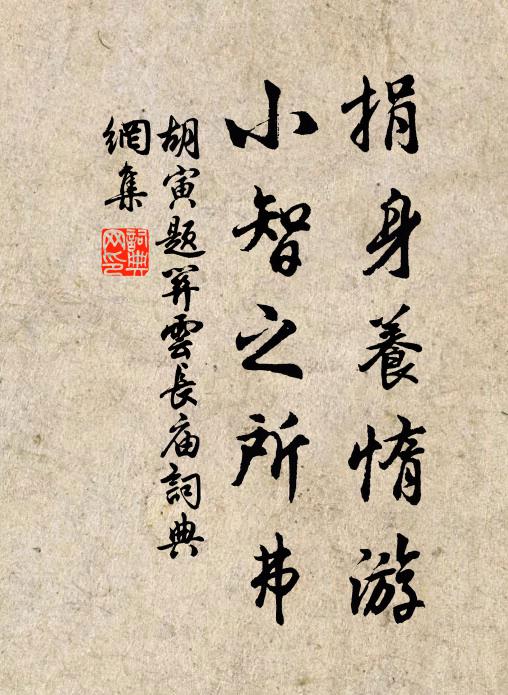 捐身養惰游
小智之所弗
胡寅題關雲長庙詞典
網集
詞典網印